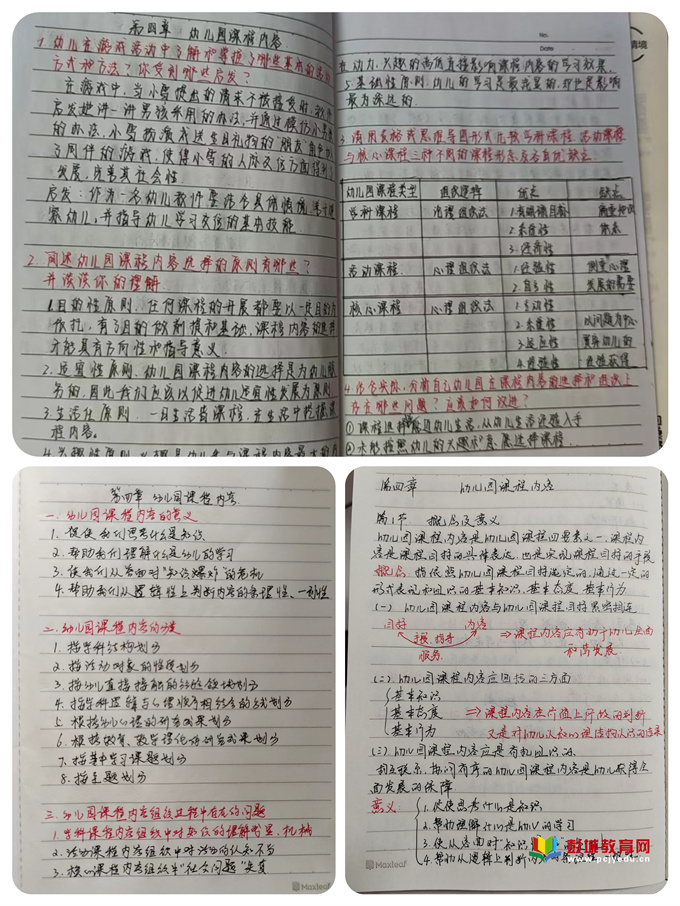 第四章 幼儿园课程内容
No.
Date
1. 幼儿在游戏活动中了解和掌握了哪些基本的
方式和方法?你受到哪些启发?
在游戏中,当小雪提出的请求不被接受时,
的办法,小雪扮演或送生日礼物的"朋友"
了同伴的游戏,使得小雪的人际交往方面得到
发展,完善其社会性
启发:作为一名幼儿教师要结合具体情境,
察幼儿,并指导幼儿学习交往的基本技能
2. 简述幼儿园课程内容选择的原则有哪些?
并谈谈你的理解
1.目的性原则.任何课程的开展都要以一定目的为
依托,有了目的做前提和基础,课程内容的选择
才能具有方向性和指导意义.
2.适宜性原则.幼儿园课程内容的选择是为幼儿服
务的.因此我们应该以促进幼儿适宜性发展为原则
3.生活化原则.一日生活皆课程,在生活中挖掘课
程内容.
4.兴趣性原则
在动力,兴趣的高低直接影响课程内容的学习效果.
5.基础性原则.幼儿的学习是最浅显的,却也是影响
最为深远的.
3.请用表格或思维导图形式比较学科课程、活动课程
与核心课程三种不同的课程形态及各自优缺点.
幼儿园课程类型 组织逻辑 优点 缺点
学科课程 1.有明确目标
2.系统性
3.经济性
活动课程 心理组织法 1.经验性 侧重心理
2.自主性 发展的需要
核心课程 心理组织法 1.主动性
2. 以问题为中心
3.
4.
4.结合实际,分析自己幼儿园在课程内容的选择和组织上
存在哪些问题?应该如何改进?
①课程选择 幼儿生活,从幼儿生活经验入手
第四章 幼儿园课程内容
一、幼儿园课程内容的意义
1. 促使我们思考什么是知识
2. 帮助我们理解什么是幼儿的学习
3. 使我们从容面对"知识爆炸"的危机
4. 帮助我们从逻辑性上判断内容的合理性、一致性
二、幼儿园课程内容的分类
1. 按学科结构划分
2. 按活动对象的性质划分
3. 按幼儿直接接触的经验领域划分
4. 按学科逻辑与心理顺序相结合的线划分
5. 根据幼儿心理的研究成果划分
6. 根据教育、教学理论的研究成果划分
7. 按基本学习课题划分
8. 按主题划分
三、幼儿园课程内容组织过程中存在的问题
1. 学科课程内容组织中对知识的理解
机械
2. 活动课程内容组织中对活动的认识不当
3. 核心课程内容组织中"社会问题"失真
Maxleaf
第四章 幼儿园课程内容
第1节 概念及意义
幼儿园课程内容是幼儿园课程四要素之一,课程内
容是课程目标的具体表达,也是实现课程目标的手段
概念:指依照幼儿园课程目标选定的,通过一定的
形式表现和组织的基本知识,基本态度,基本行为
(一)幼儿园课程内容与幼儿园课程目标紧密相连
目标 内容
指导
服务
⇒课程内容应有助于幼儿全面
和谐发展
(二)幼儿园课程内容应囊括的三方面
基本知识
基本态度 ⇒课程内容在价值上所做的判断
基本行为 又是对幼儿认知心理结构认识的结果
(三)幼儿园课程内容应是有机组织的.
的幼儿园课程内容是幼儿获得全
面发展的保障
意义: 1.促使思考什么是知识
2.帮助理解什么是幼儿的学习
3.使从容面对"知识
4.帮助从逻辑上判断内
Maxleaf
教育网
www.pcjyedu.cn